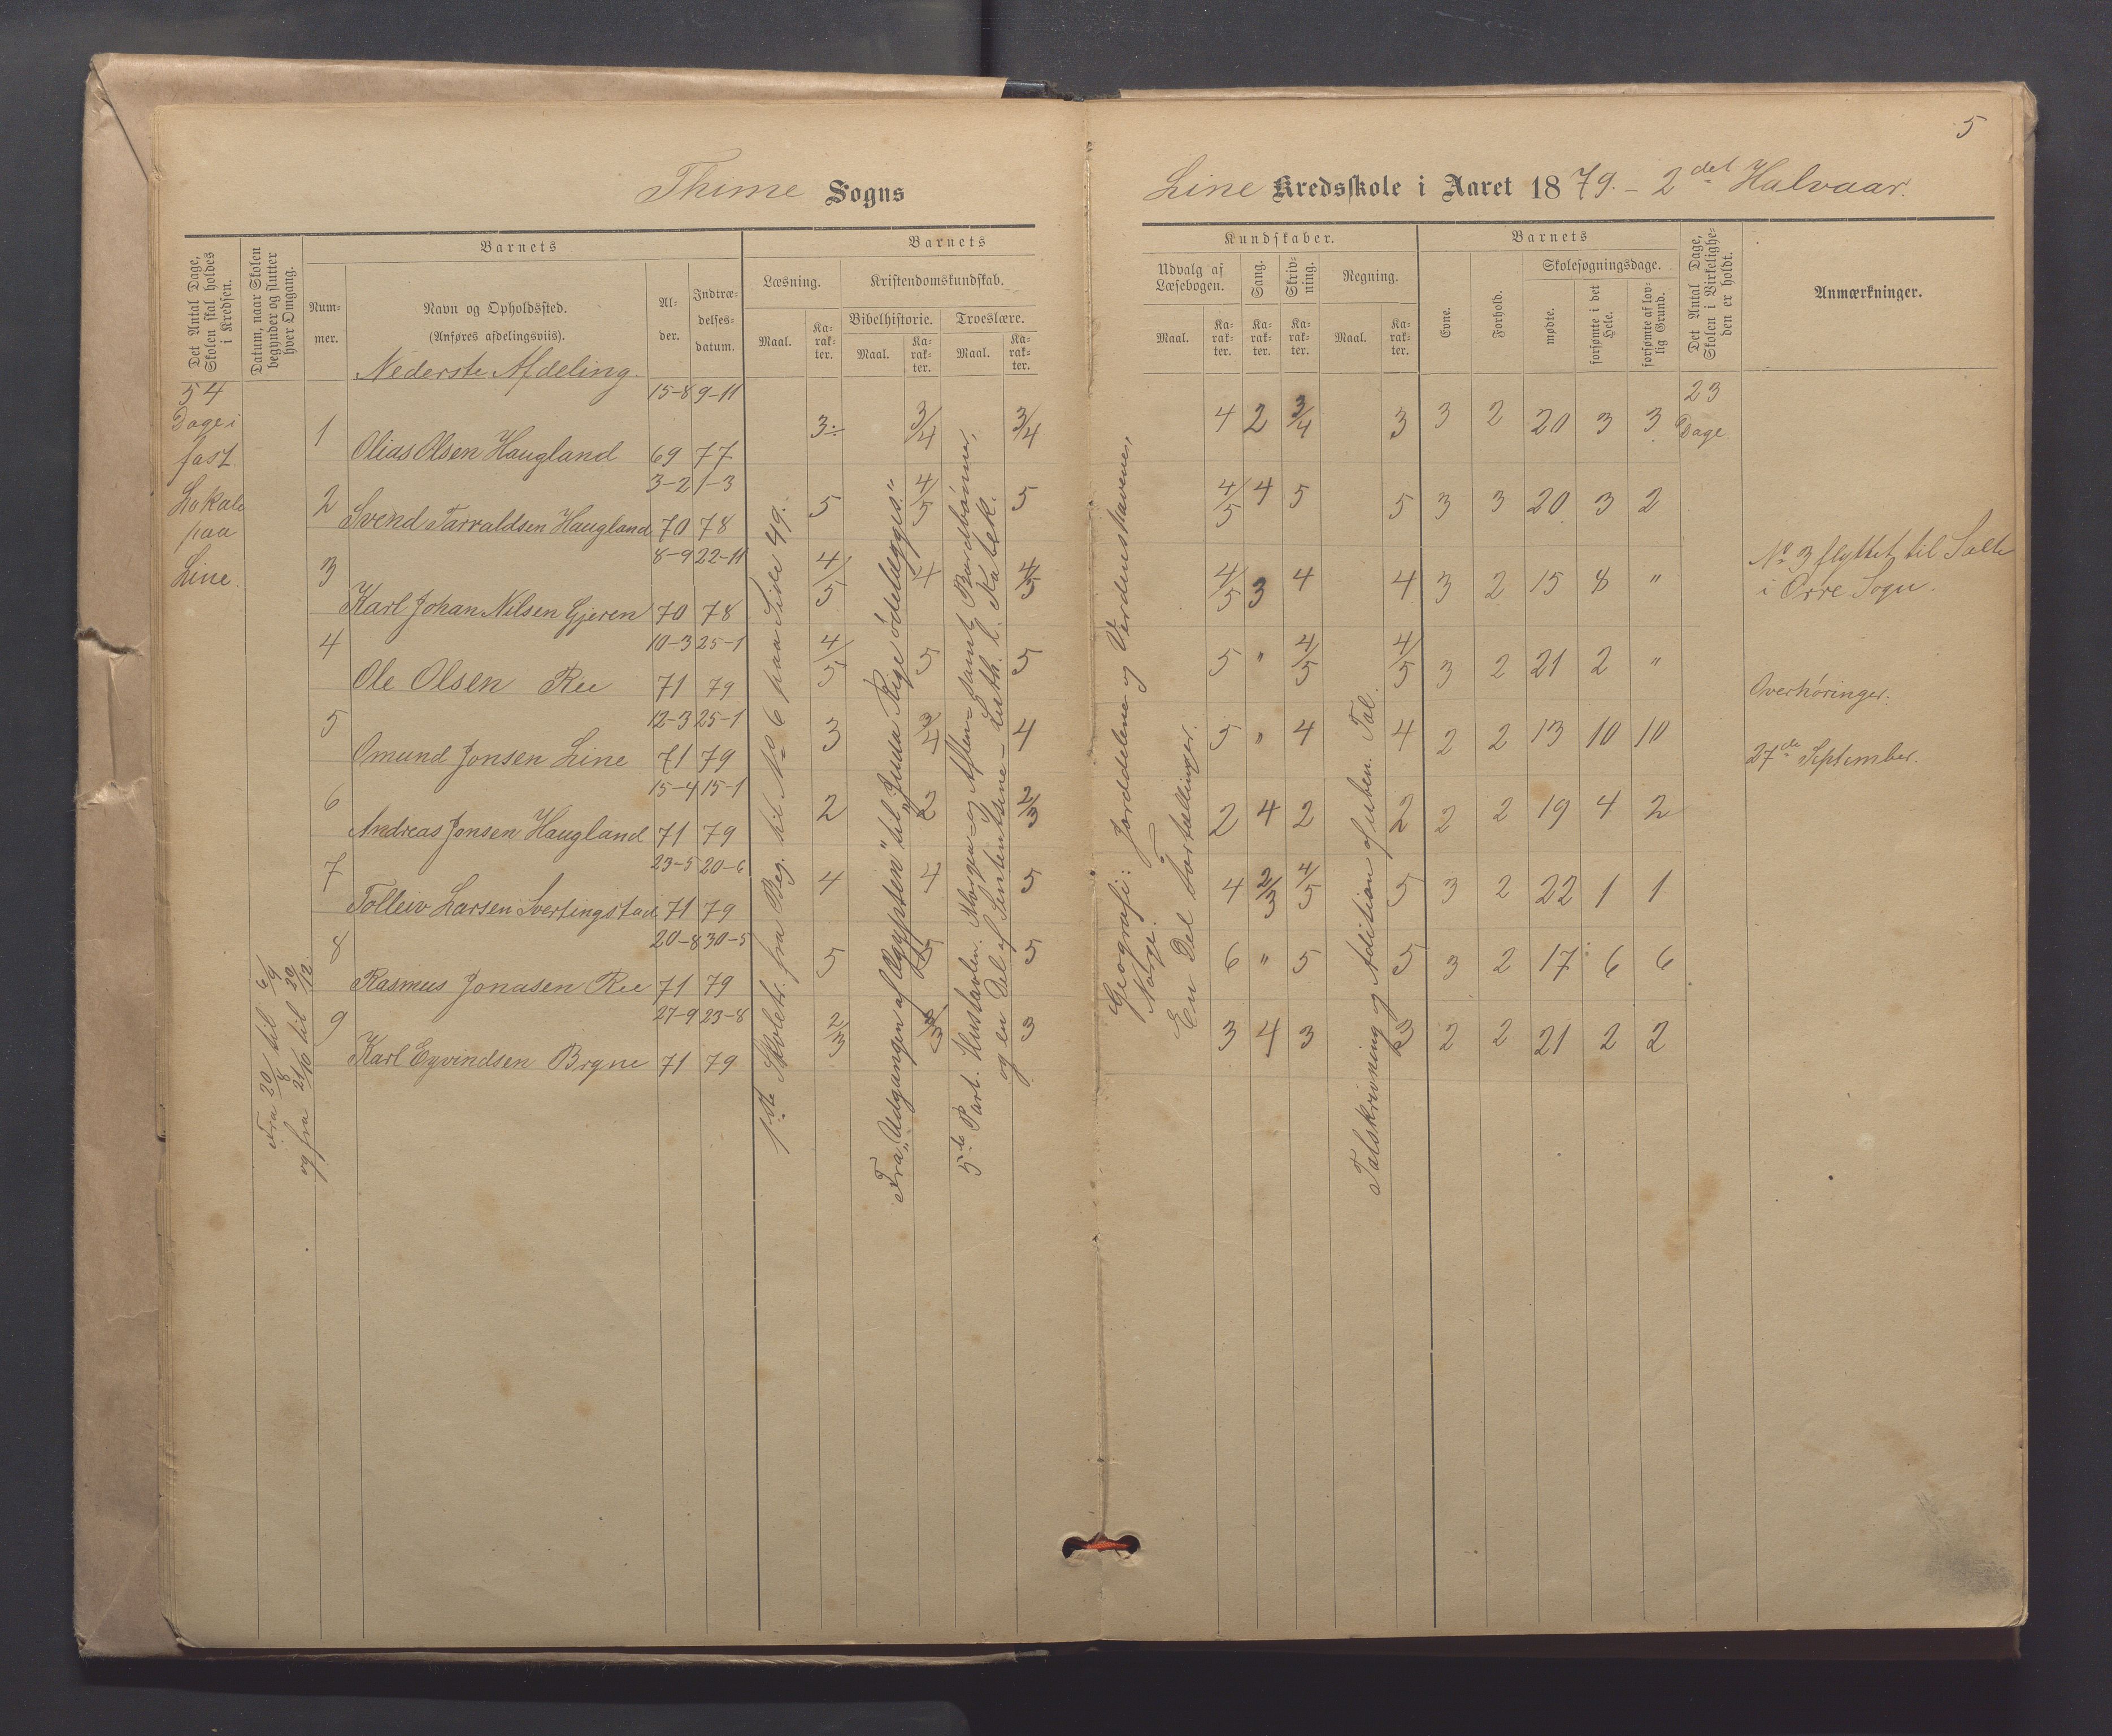 5
Thime Sogns
Line Kredsskole i Aaret 1879. - 2det Halvaar.
Det Antal Dage, Skolen skal holdes i Kredsen.
Datum, naar Skolen begynder og slutter hver Omgang.
Barnets
Num-mer.
Navn og Opholdssted.
(Anføres afdelingsviis).
Al-der.
Indtræ-delses-datum.
Barnets
Læsning.
Maal.
Ka-rak-ter.
Kristendomskundskab.
Bibelhistorie.
Maal.
Ka-rak-ter.
Troeslære.
Maal.
Ka-rak-ter.
Kundskaber.
Udvalg af Læsebogen.
Maal.
Ka-rak-ter.
Sang.
Ka-rak-ter.
Skriv-ning.
Ka-rak-ter.
Regning.
Maal.
Ka-rak-ter.
Barnets
Evne.
Forhold.
Skolesøgningsdage.
mødte.
forsømte i det Hele.
forsømte af lov-lig Grund.
Det Antal Dage, Skolen i Virkelighe-den er holdt.
Anmærkninger.
Nederste Afdeling.
54
Dage i
fast
Lokale
paa
Line.
Fra 20/8 til 6/9
og fra 21/10 til 20/12
1 Olias Olsen Haugland 15-8 69 9-11 77 3 3/4 3/4 4 2 3/4 3 3 2 20 3 3 23 Dage
2 Svend Tarraldsen Haugland 3-2 70 1-3 78 5 4/5 5 4/5 4 5 5 3 3 20 3 2
3 Karl Johan Nilsen Gjeren 8-9 70 22-11 78 4/5 4 4/5 4/5 3 4 4 3 2 15 8 "
4 Ole Olsen Ree 10-3 71 25-1 79 4/5 5 5 5 " 4/5 4/5 3 2 21 2 "
5 Omund Jonsen Line 12-3 71 25-1 79 3 3/4 4 5 " 4 4 2 2 13 10 10
6 Andreas Jonsen Haugland 15-4 71 15-1 79 2 2 2/3 2 4 2 2 2 2 19 4 2
7 Tolleiv Larsen Svertingstad 23-5 71 20-6 79 4 4 5 4 2/3 4/5 5 3 2 22 1 1
8 Rasmus Jonasen Ree 20-8 71 30-5 79 5 5 5 6 " 5 5 3 2 17 6 6
9 Karl Eyvindsen Bryne 27-9 71 23-8 79 2/3 3 3 4 3 3 2 2 21 2 2
1ste Skoletr. fra Beg. til No 6 paa Side 49.
Fra "Udgangen af Ægypten" til "Juda Rige ødelægges."
5te Part. Hustavlen. Morgen- og Aften- samt Bordbønner,
og en Del af Sententserne - Luth. l. Katek.
Geografi: Jorddelene og Verdenshavene,
Norge.
En Del Fortællinger.
Talskrivning og Addition af uben. Tal.
No 3 flyttet til Salte
i Orre Sogn.
Overhøringer.
27de September.